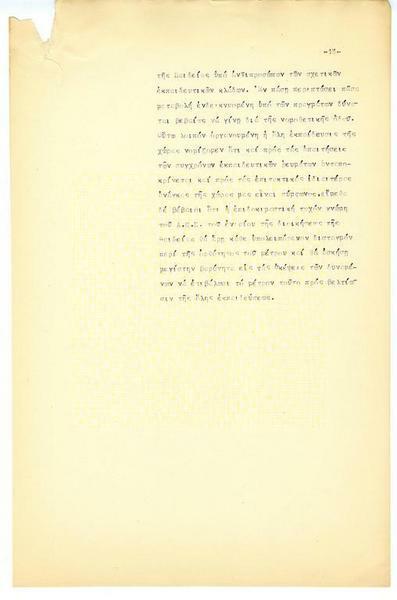 -15-
τῆς Παιδείας ὑπό ἀντιπροσώπων τῶν σχετικῶν
ἐκπαιδευτικῶν κλάδων. Ἐν πάσῃ περιπτώσει πᾶσα
μεταβολή ἐνδεικνυομένη ὑπό τῶν πραγμάτων δύνα-
ται βεβαίως νά γίνῃ διά τῆς νομοθετικῆς ὁδοῦ.
Οὕτω λοιπόν ὀργανουμένη ἡ ὅλη ἐκπαίδευσις τῆς
χώρας νομίζομεν ὅτι καί πρός τάς ἀπαιτήσεις
τῶν συγχρόνων ἐκπαιδευτικῶν ρευμάτων ἀνταπο-
κρίνεται καί πρός τάς ἐπιτακτικάς ἰδιαιτέρας
ἀνάγκας τῆς χώρας μας εἶναι σύμφωνος. εἴμεθα
δέ βέβαιοι ὅτι ἡ ἐπιδοκιμαστική τυχόν γνώμη
τοῦ Α.Ε.Σ. τοῦ ἐπὶ τῆς διοικήσεως τῆς
Παιδείας θά ἄρῃ κάθε ὑπολειπόμενον δισταγμόν
περί τῆς ὀρθότητος τοῦ μέτρου καί θά ἀσκήσῃ
μεγίστην βαρύτητα εἰς τάς σκέψεις τῶν δυναμέ-
νων νά ἐπιβάλωσι τό μέτρον τοῦτο πρός βελτίω-
σιν τῆς ὅλης ἐκπαιδεύσεως.